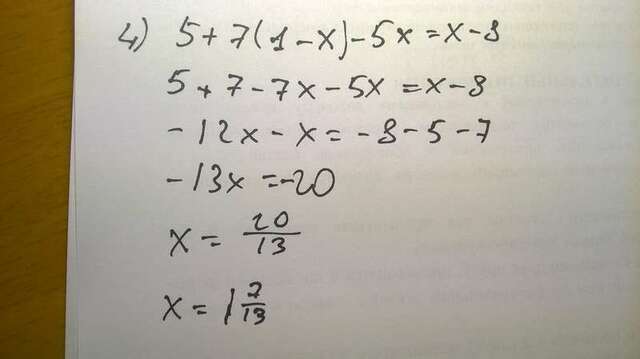 4) 5+7(1-x)-5x=x-8
5+7-7x-5x=x-8
-12x-x=-8-5-7
-13x=-20
x=20/13
x=1 7/13